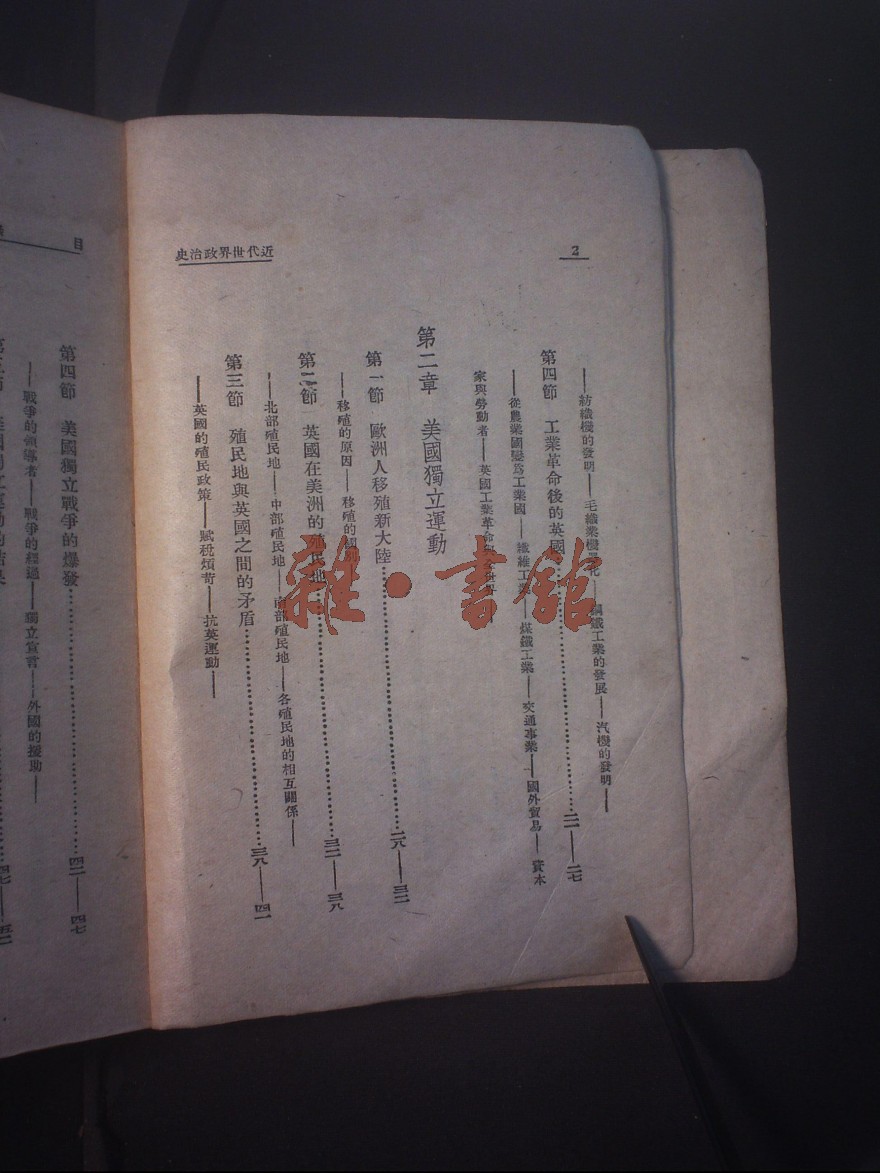 2
近代世界政治史
——紡織機的發明——毛織業機——鋼鐵工業的發展——汽機的發明——
第四節 工業革命後的英國…………二一——二七
——從農業國變爲工業國——纖維工業——煤鐵工業——交通事業——國外貿易——資本
家與勞動者——英國工業革命與全世界
第二章 美國獨立運動
第一節 歐洲人移殖新大陸…………二八——三二
——移殖的原因——移殖的
第二節 英國在美洲的殖民地…………三二——三八
北部殖民地——中部殖民地——南部殖民地——各殖民地的相互關係——
第三節 殖民地與英國之間的矛盾…………三八——四一
——英國的殖民政策——賦稅煩苛——抗英運動——
目
第四節 美國獨立戰爭的爆發…………四二——四七
——戰爭的領導者——戰爭的經過——獨立宣言——外國的援助——
雜·書館